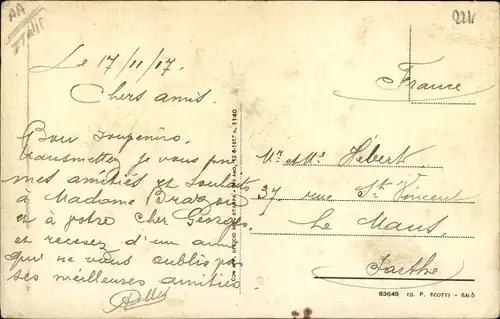 AA
ITALIE
221
Le 17/11/17.
Chers amis.
Bon souvenirs,
transmettez je vous prie
mes amitiés et souhaits
à Madame
et à votre cher Georges,
et recevez d'un ami
qui ne vous oublie pas
ses meilleures amitiés
France
Mr et Me Hébert
37. rue St Vincent
Le Mans
Sarthe
83649 ED. P. SCOTTI - SALÒ